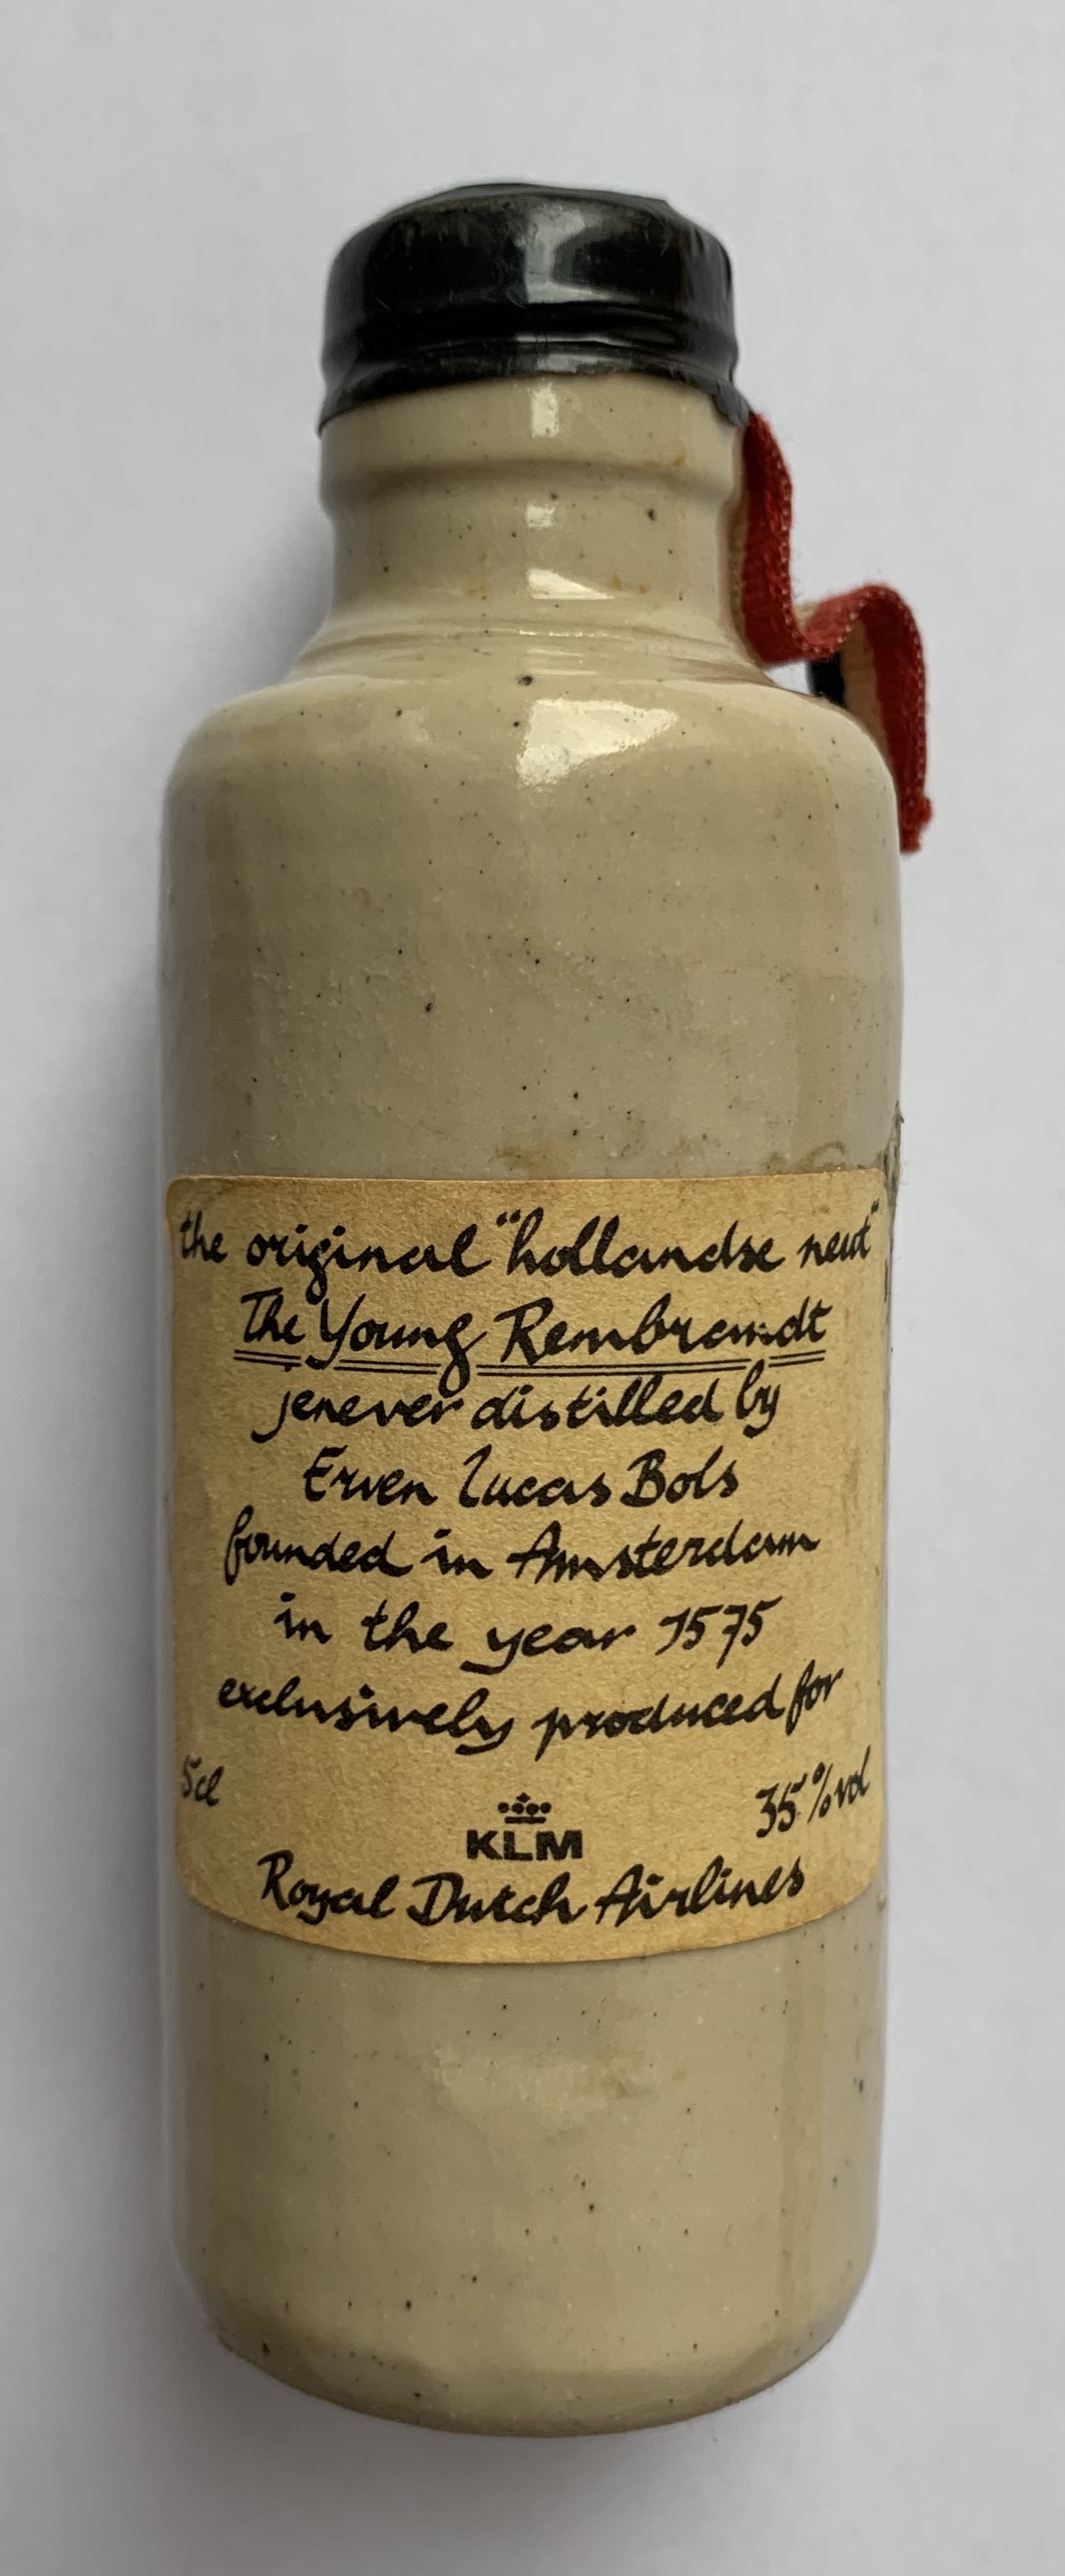 the original "hollandse neut"
The Young Rembrandt
jenever distilled by
Erven Lucas Bols
founded in Amsterdam
in the year 1575
exclusively produced for
5cl 35%vol
KLM
Royal Dutch Airlines